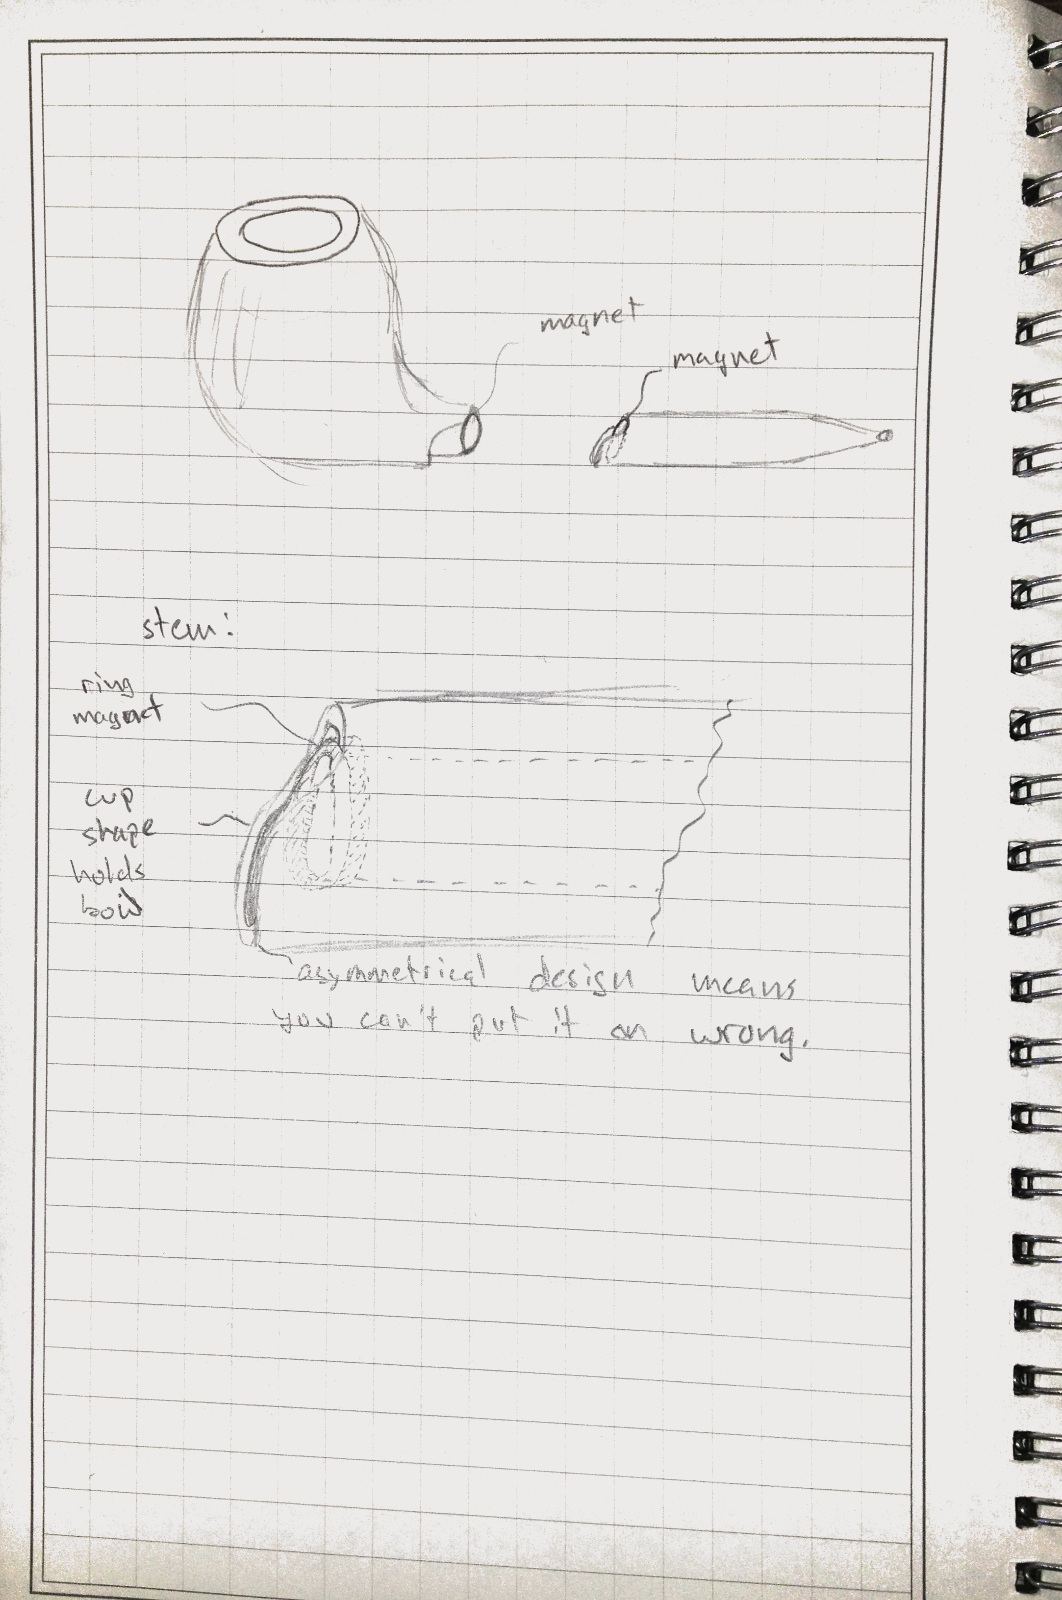 magnet
magnet
stem:
ring
magnet
cup
shape
holds
bowl
asymmetrical design means
you can't put it on wrong.